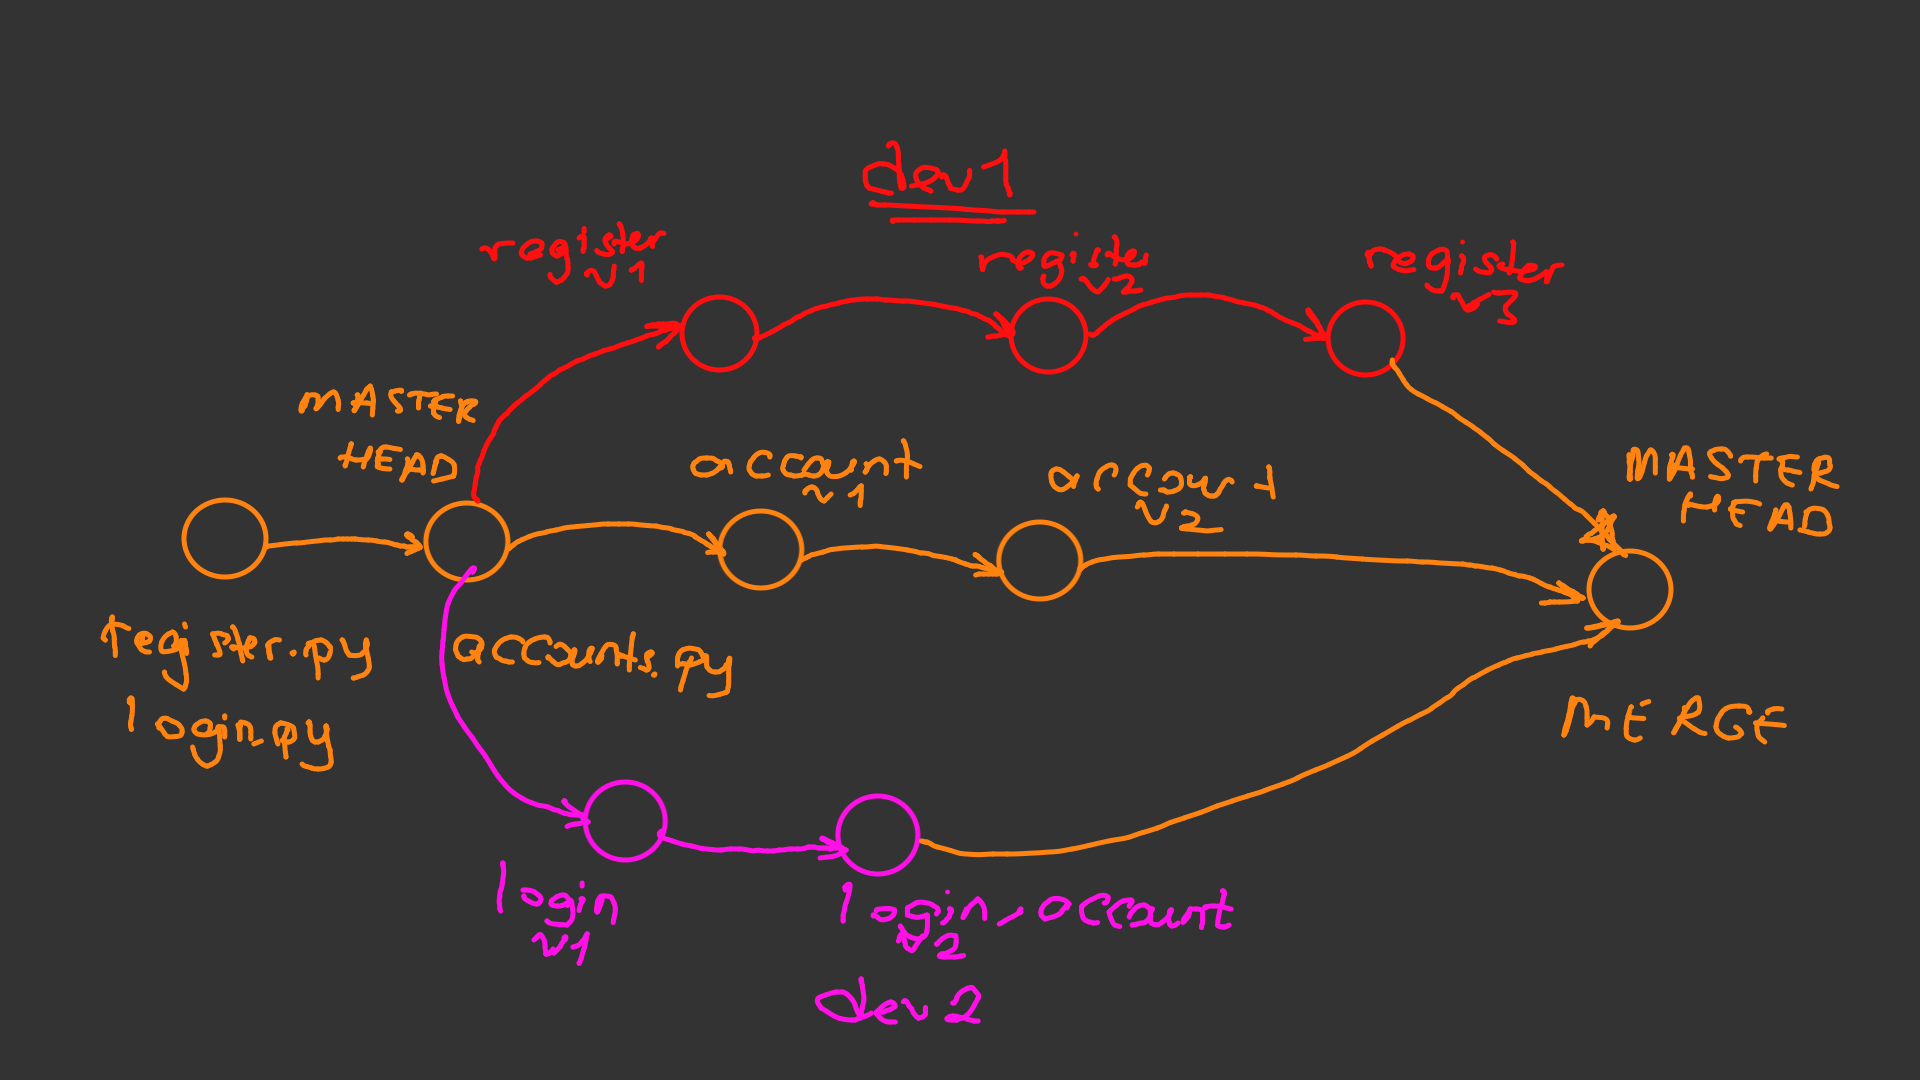 dev1
register
v1
register
v2
register
v3
MASTER
HEAD
account
v1
account
v2
MASTER
HEAD
register.py
accounts.py
login.py
MERGE
login
v1
login, account
v2
dev2